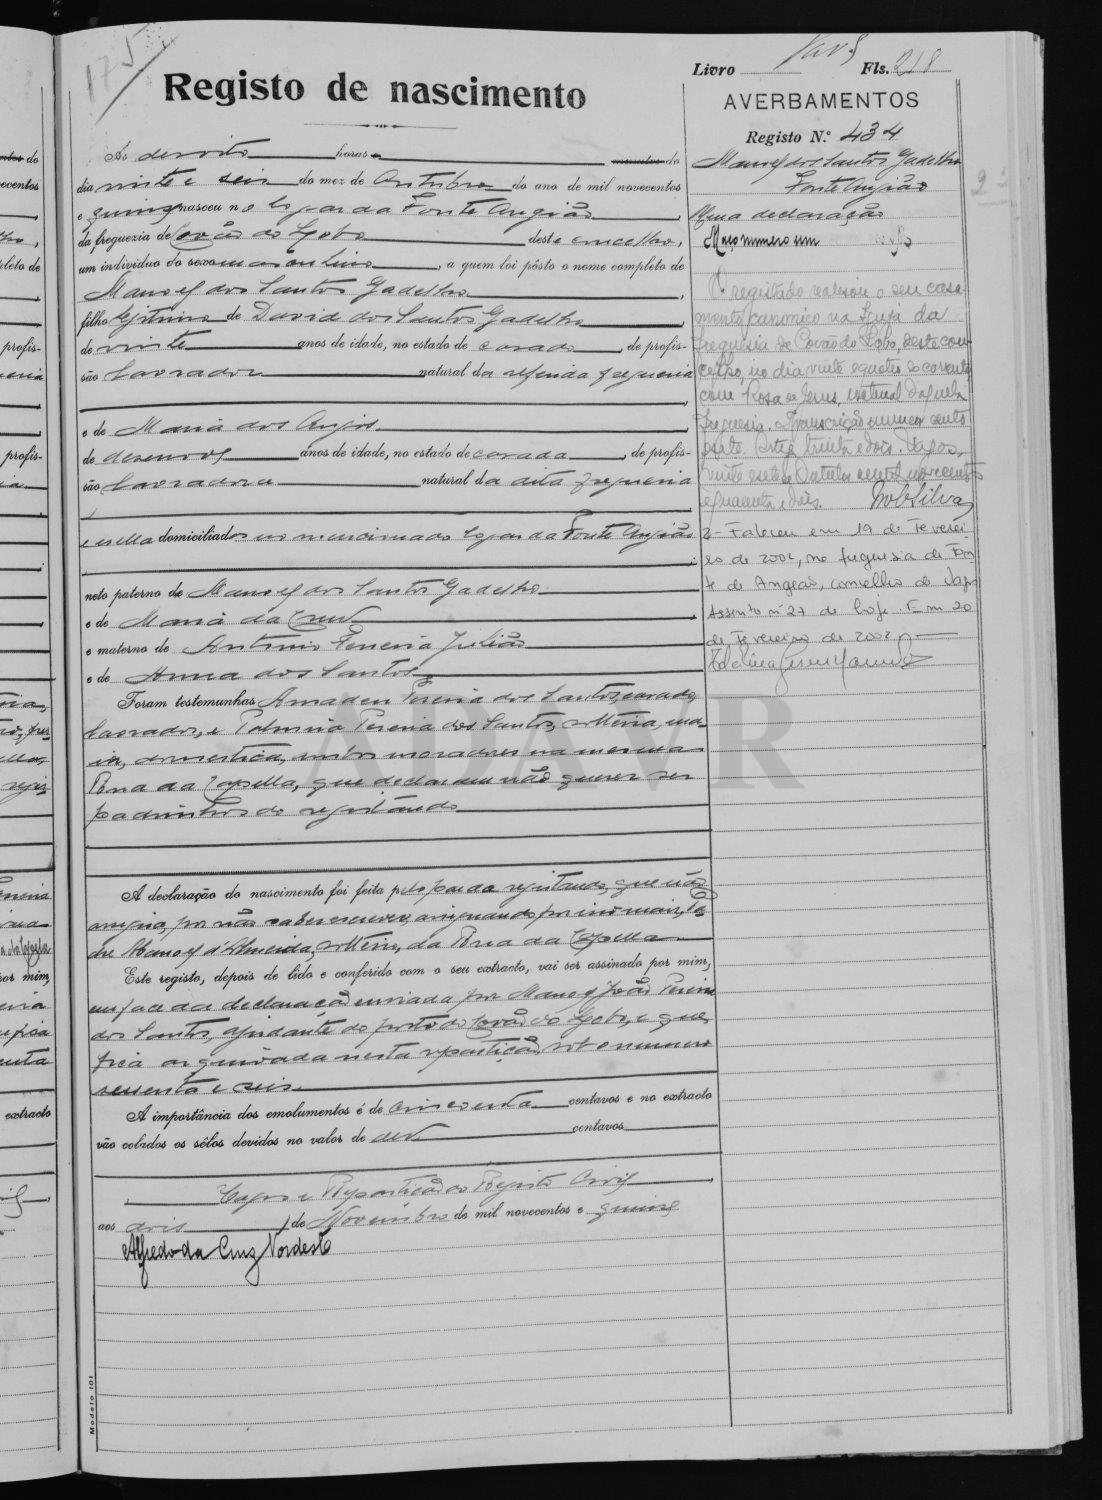 175
Registo de nascimento
Ás dezoito horas e minutos do
dia vinte e seis do mez de Outubro do ano de mil novecentos
e quinze nasceu no logar da Fonte Angião,
da freguezia de Covão do Lobo deste concelho,
um individuo do sexo masculino, a quem foi pôsto o nome completo de
Manoel dos Santos Gadelho,
filho legitimo de David dos Santos Gadelho,
de vinte anos de idade, no estado de casado, de profis-
são lavrador natural da referida freguezia
e de Maria dos Anjos
de dezenove anos de idade, no estado de casada, de profis-
são lavradora natural da dita freguezia
e ella domiciliados no mencionado logar da Fonte Angião
;
neto paterno de Manoel dos Santos Gadelho
e de Maria da Cruz,
e materno de Antonio Pereira Julião
e de Anna dos Santos.
Foram testemunhas Amadeu Pereira dos Santos, casado,
lavrador, e Palmira Pereira dos Santos, solteira, ma-
ior, domestica, ambos moradores na mesma
Rua da Capella, que declaram não querer ser
padrinhos do registando
A declaração do nascimento foi feita pelo pae do registando, que não
assigna, por não saber escrever, assignando por isso mais,
Manoel d'Almeida, solteiro, da Rua da Capella
Este registo, depois de lido e conferido com o seu extracto, vai ser assinado por mim,
em face da declaração enviada por Manoel João Pereira
dos Santos, ajudante do posto do Covão do Lobo, e que
fica arquivada nesta repartição, sob o numero
sessenta e seis
A importância dos emolumentos é de cincoenta centavos e no extracto
vão colados os sêlos devidos no valor de dez centavos
Vagos e Repartição do Registo Civil,
aos dois de Novembro de mil novecentos e quinze
Alfredo da Cruz Nordeste
Modelo 101
Livro Fls. 218
AVERBAMENTOS
Registo N.º 434
Manoel dos Santos Gadelho
Fonte Angião
Uma declaração
Maço numero um
O registado realisou o seu casa-
mento canonico na Igreja da
freguesia de Covão do Lobo, deste con-
celho, no dia vinte e quatro do corrente
com Rosa de Jesus, natural daquela
freguesia. Transcrição numero cento
e trinta e dois. Vagos,
vinte e sete de Outubro de mil novecentos
e quarenta e dois. Silva
2- Faleceu em 19 de Feverei-
ro de 2002, na freguesia de Fon-
te de Angeão, concelho de Vagos
Assento nº 27 de hoje. Em 20
de Fevereiro de 2002
ADAVR